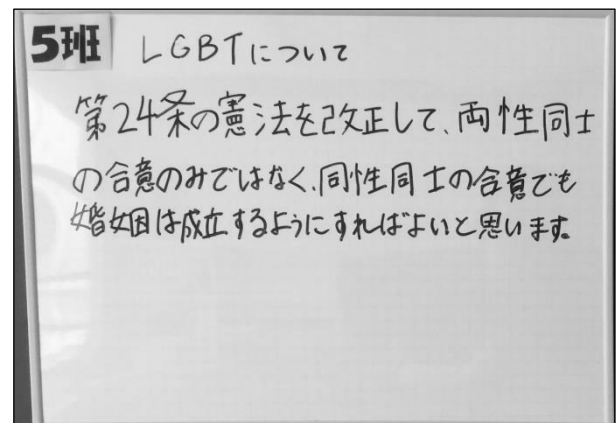 5班 LGBTについて
第24条の憲法を改正して、両性同士
の合意のみではなく、同性同士の合意でも
婚姻は成立するようにすればよいと思います。